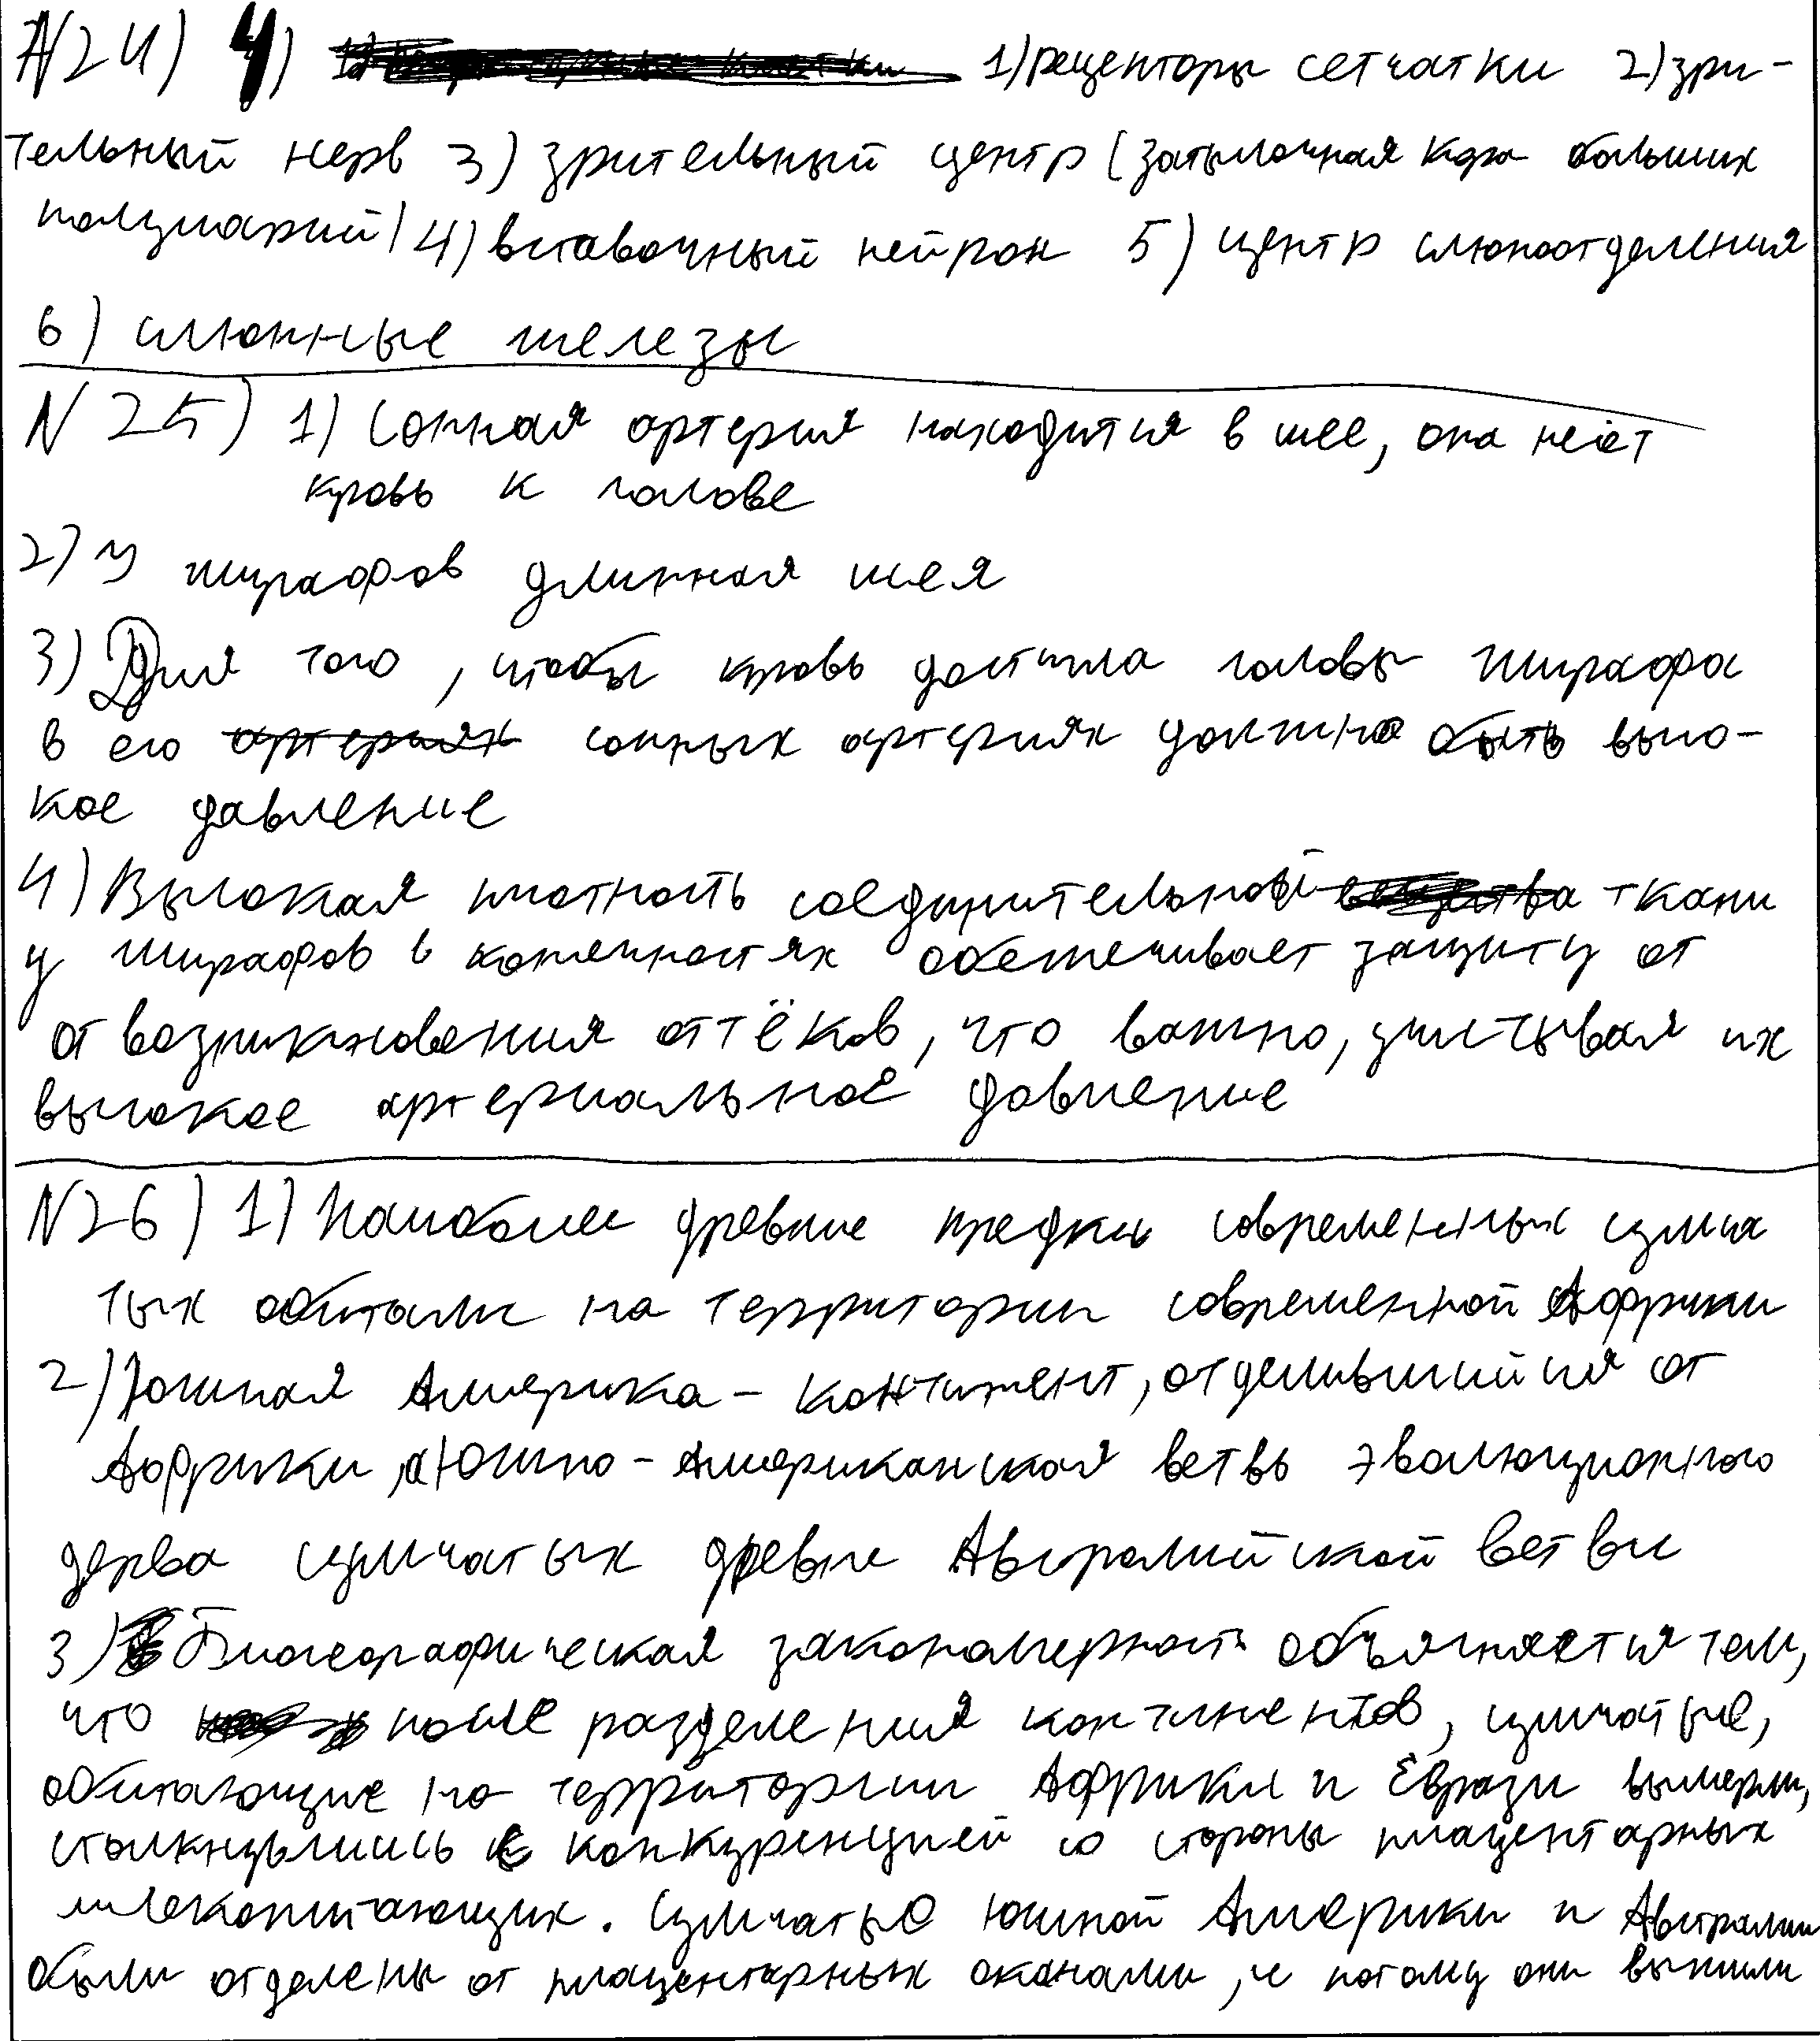 N24) 4) 1) рецепторы сетчатки 2) зри-
тельный нерв 3) зрительный центр (затылочная кора больших
полушарий) 4) вставочный нейрон 5) центр слюноотделения
6) слюнные железы
N 25) 1) Сонная артерия находится в шее, она несёт
кровь к голове
2) У жирафов длинная шея
3) Для того, чтобы кровь достигла головы жирафа
в его артериях сонных артериях должно быть высо-
кое давление
4) Высокая плотность соединительной ткани
у жирафов в конечностях обеспечивает защиту от
от возникновения отёков, что важно, учитывая их
высокое артериальное давление
N26) 1) Наиболее древние предки современных сумча
тых обитали на территории современной Африки
2) Южная Америка - континент, отделившийся от
Африки, а Южно-Американская ветвь эволюционного
дерева сумчатых древне Австралийской ветви
3) Биогеографическая закономерность объясняется тем,
что после разделения континентов, сумчатые,
обитающие на территории Африки и Еврази вымерли,
столкнувшись с конкуренцией со стороны плацентарных
млекопитающих. Сумчатые Южной Америки и Австралии
были отделены от плацентарных океанами, и потому они выжили